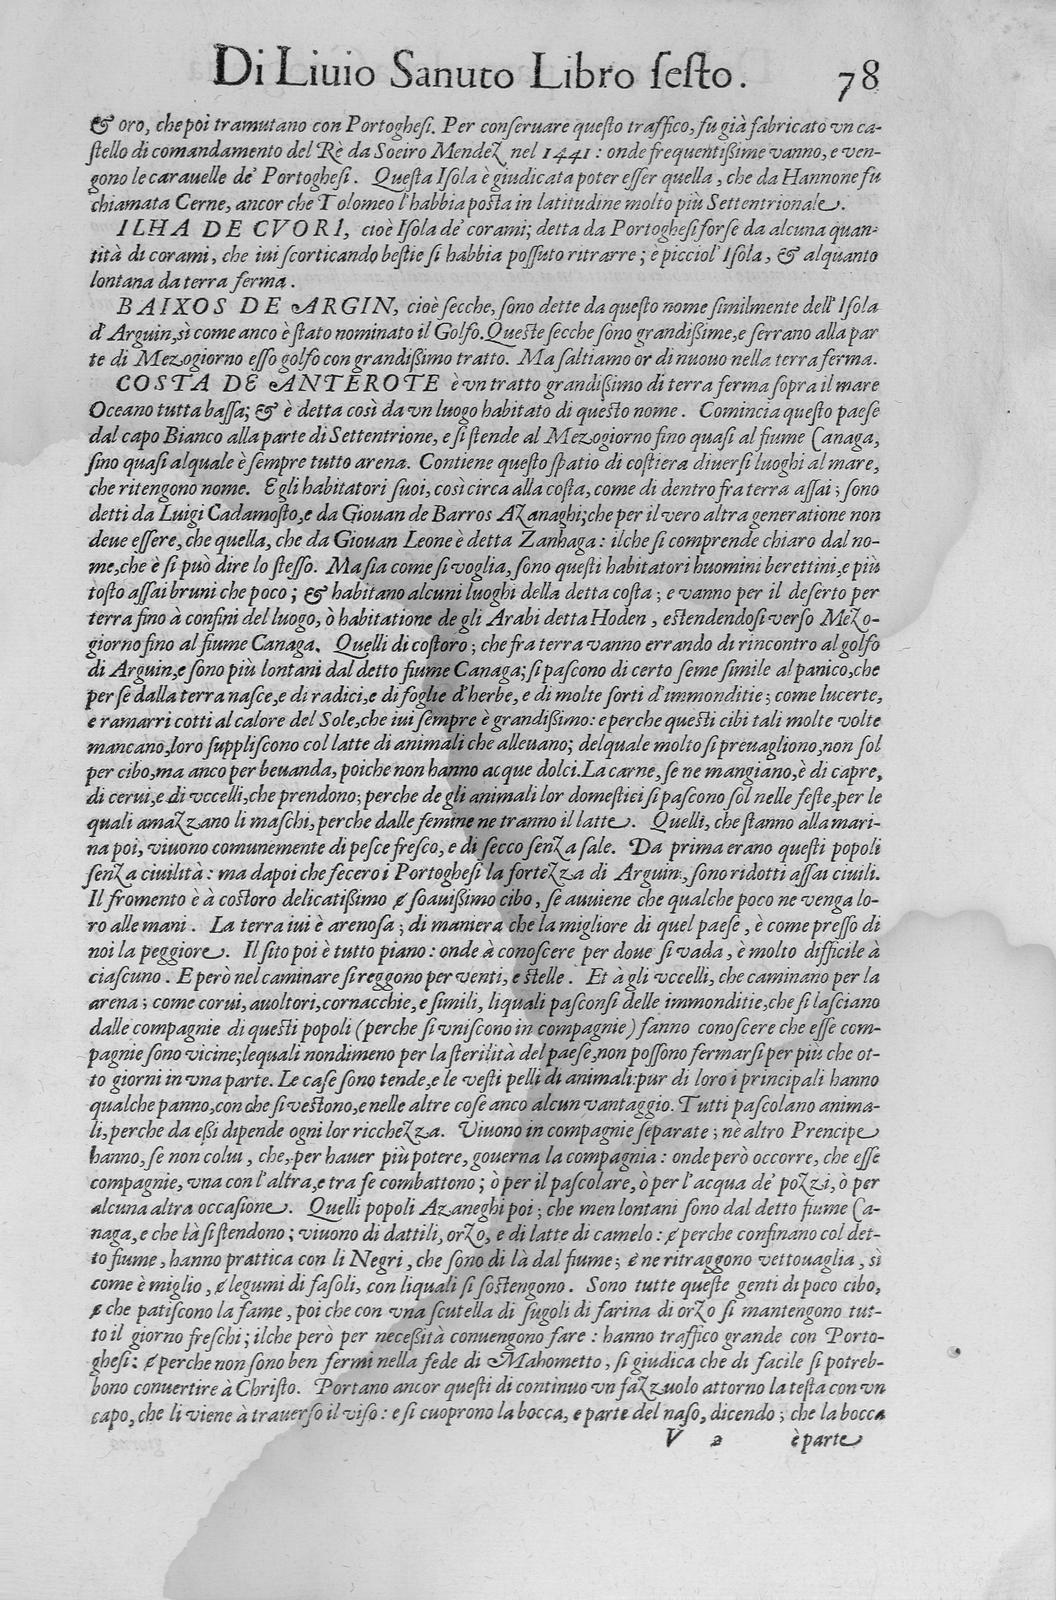 Di Liuio Sanuto Libro ſeſto. 78
& oro, che poi tramutano con Portogheſi. Per conſeruare queſto traffico, fu già fabricato vn ca-
ſtello di comandamento del Rè da Soeiro Mendez nel 1441: onde frequentiſſime vanno, e ven-
gono le carauelle de' Portogheſi. Queſta Iſola è giudicata poter eſſer quella, che da Hannone fu
chiamata Cerne, ancor che Tolomeo l'habbia poſta in latitudine molto più Settentrionale.
ILHA DE CVORI, cioè Iſola de' corami; detta da Portogheſi forſe da alcuna quan-
tità di corami, che iui ſcorticando beſtie ſi habbia poſſuto ritrarre; è picciol' Iſola, & alquanto
lontana da terra ferma.
BAIXOS DE ARGIN, cioè ſecche, ſono dette da queſto nome ſimilmente dell' Iſola
d'Arguin, ſì come anco è ſtato nominato il Golfo. Queſte ſecche ſono grandiſſime, e ſerrano alla par
te di Mezogiorno eſſo golfo con grandiſſimo tratto. Ma ſaltiamo or di nuouo nella terra ferma.
COSTA DE ANTEROTE è vn tratto grandiſſimo di terra ferma ſopra il mare
Oceano tutta baſſa; & è detta così da vn luogo habitato di queſto nome. Comincia queſto paeſe
dal capo Bianco alla parte di Settentrione, e ſi ſtende al Mezogiorno fino quaſi al fiume Canaga,
ſino quaſi al quale è ſempre tutto arena. Contiene queſto ſpatio di coſtiera diuerſi luoghi al mare,
che ritengono nome. E gli habitatori ſuoi, così circa alla coſta, come di dentro fra terra aſſai; ſono
detti da Luigi Cadamoſto, e da Giouan de Barros Azanaghi; che per il vero altra generatione non
deue eſſere, che quella, che da Giouan Leone è detta Zanhaga: ilche ſi comprende chiaro dal no-
me, che è ſi può dire lo ſteſſo. Ma ſia come ſi voglia, ſono queſti habitatori huomini berettini, e più
toſto aſſai bruni che poco; & habitano alcuni luoghi della detta coſta; e vanno per il deſerto per
terra fino à confini del luogo, ò habitatione de gli Arabi detta Hoden, eſtendendoſi verſo Mezo-
giorno fino al fiume Canaga. Quelli di coſtoro; che fra terra vanno errando di rincontro al golfo
di Arguin, e ſono più lontani dal detto fiume Canaga; ſi paſcono di certo ſeme ſimile al panico, che
per ſe dalla terra naſce, e di radici, e di foglie d'herbe, e di molte ſorti d'immonditie; come lucerte,
e ramarri cotti al calore del Sole, che iui ſempre è grandiſſimo: e perche queſti cibi tali molte volte
mancano, loro ſuppliſcono col latte di animali che alleuano; delquale molto ſi preuagliono, non ſol
per cibo, ma anco per beuanda, poiche non hanno acque dolci. La carne, ſe ne mangiano, è di capre,
di cerui, e di vccelli, che prendono; perche de gli animali lor domeſtici ſi paſcono ſol nelle feſte, per le
quali amazzano li maſchi, perche dalle femine ne tranno il latte. Quelli, che ſtanno alla mari-
na poi, viuono comunemente di peſce freſco, e di ſecco ſenza ſale. Da prima erano queſti popoli
ſenza ciuilità: ma dapoi che fecero i Portogheſi la fortezza di Arguin, ſono ridotti aſſai ciuili.
Il fromento è à coſtoro delicatiſſimo & ſoauiſſimo cibo, ſe auuiene che qualche poco ne venga lo-
ro alle mani. La terra iui è arenoſa; di maniera che la migliore di quel paeſe, è come preſſo di
noi la peggiore. Il ſito poi è tutto piano: onde à conoſcere per doue ſi vada, è molto difficile à
ciaſcuno. E però nel caminare ſi reggono per venti, e ſtelle. Et à gli vccelli, che caminano per la
arena; come corui, auoltori, cornacchie, e ſimili, liquali paſconſi delle immonditie, che ſi laſciano
dalle compagnie di queſti popoli (perche ſi vniſcono in compagnie) fanno conoſcere che eſſe com-
pagnie ſono vicine; lequali nondimeno per la ſterilità del paeſe, non poſſono fermarſi per più che ot-
to giorni in vna parte. Le caſe ſono tende, e le veſti pelli di animali: pur di loro i principali hanno
qualche panno, con che ſi veſtono, e nelle altre coſe anco alcun vantaggio. Tutti paſcolano anima-
li, perche da eſſi dipende ogni lor ricchezza. Viuono in compagnie ſeparate; nè altro Prencipe
hanno, ſe non colui, che, per hauer più potere, gouerna la compagnia: onde però occorre, che eſſe
compagnie, vna con l'altra, e tra ſe combattono; ò per il paſcolare, ò per l'acqua de' pozzi, ò per
alcuna altra occaſione. Quelli popoli Azaneghi poi; che men lontani ſono dal detto fiume Ca-
naga, e che là ſi ſtendono; viuono di dattili, orzo, e di latte di camelo: & perche confinano col det-
to fiume, hanno prattica con li Negri, che ſono di là dal fiume; & ne ritraggono vettouaglia, sì
come è miglio, & legumi di faſoli, con liquali ſi ſoſtengono. Sono tutte queſte genti di poco cibo,
& che patiſcono la fame, poi che con vna ſcutella di ſugoli di farina di orzo ſi mantengono tut-
to il giorno freſchi; ilche però per neceſſità conuengono fare: hanno traffico grande con Porto-
gheſi: & perche non ſono ben fermi nella fede di Mahometto, ſi giudica che di facile ſi potreb-
bono conuertire à Chriſto. Portano ancor queſti di continuo vn fazzuolo attorno la teſta con vn
capo, che li viene à trauerſo il viſo: e ſi cuoprono la bocca, e parte del naſo, dicendo; che la bocca
V 2 è parte